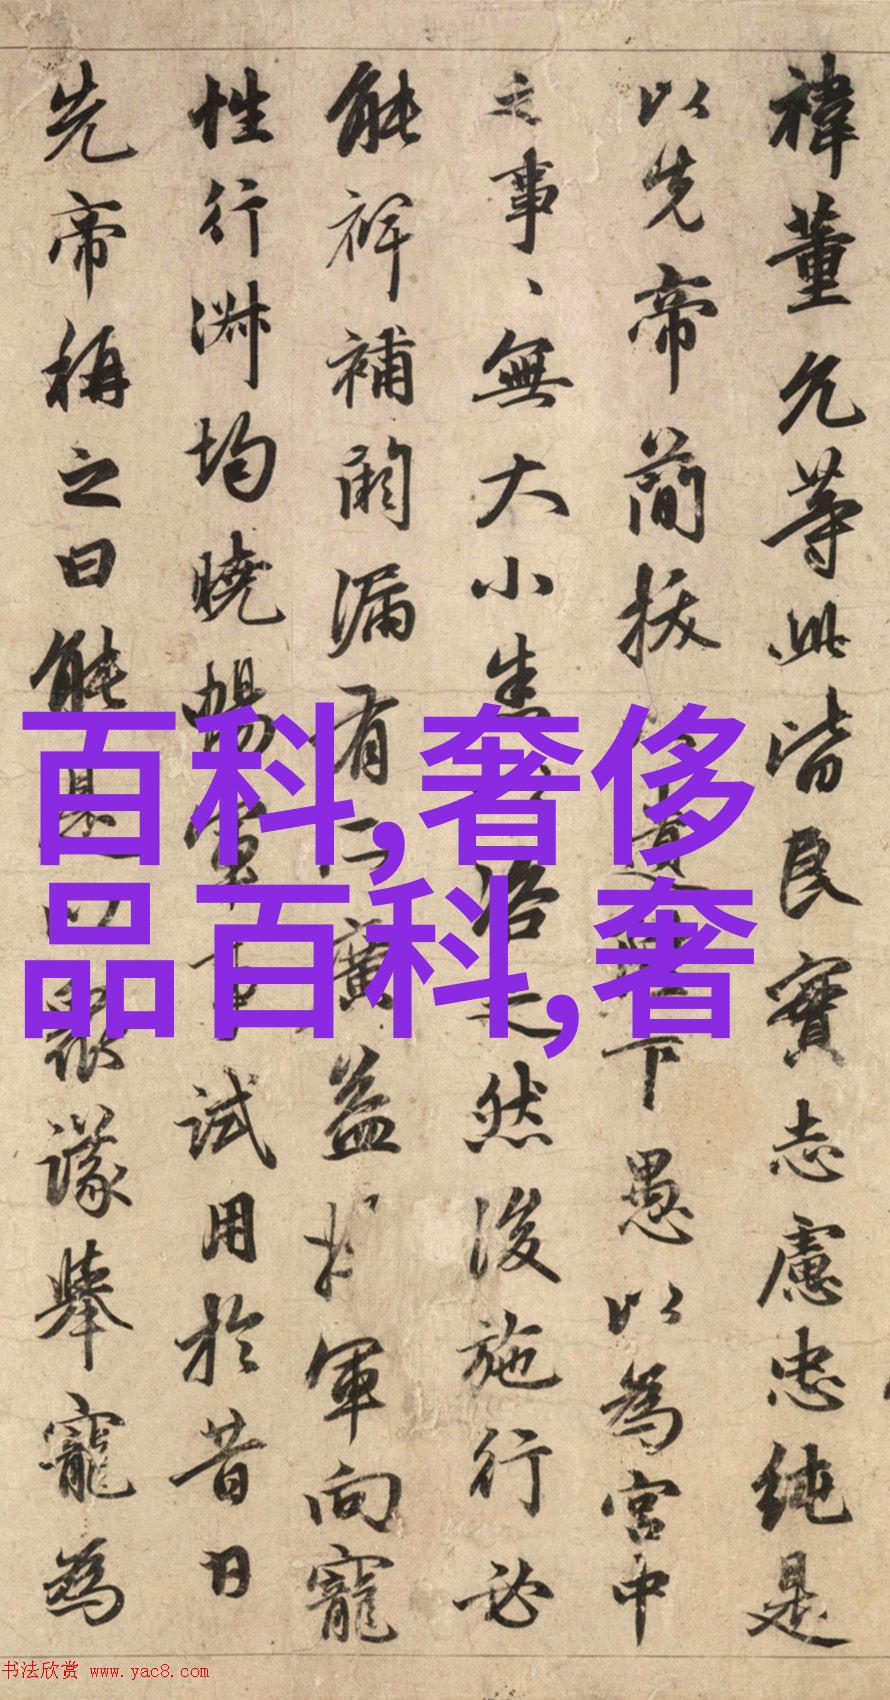 禕董允等此皆良實志慮忠純是
以先帝簡拔遺下愚以為宮中
之事、無大小悉咨之然後施行必
能裨補闕漏有廣益將軍向寵
性行淑均曉暢軍事試用於昔日
先帝稱之曰能是以眾議舉寵為
百科,奢侈
品百科,奢
书法欣赏 www.yac8.com